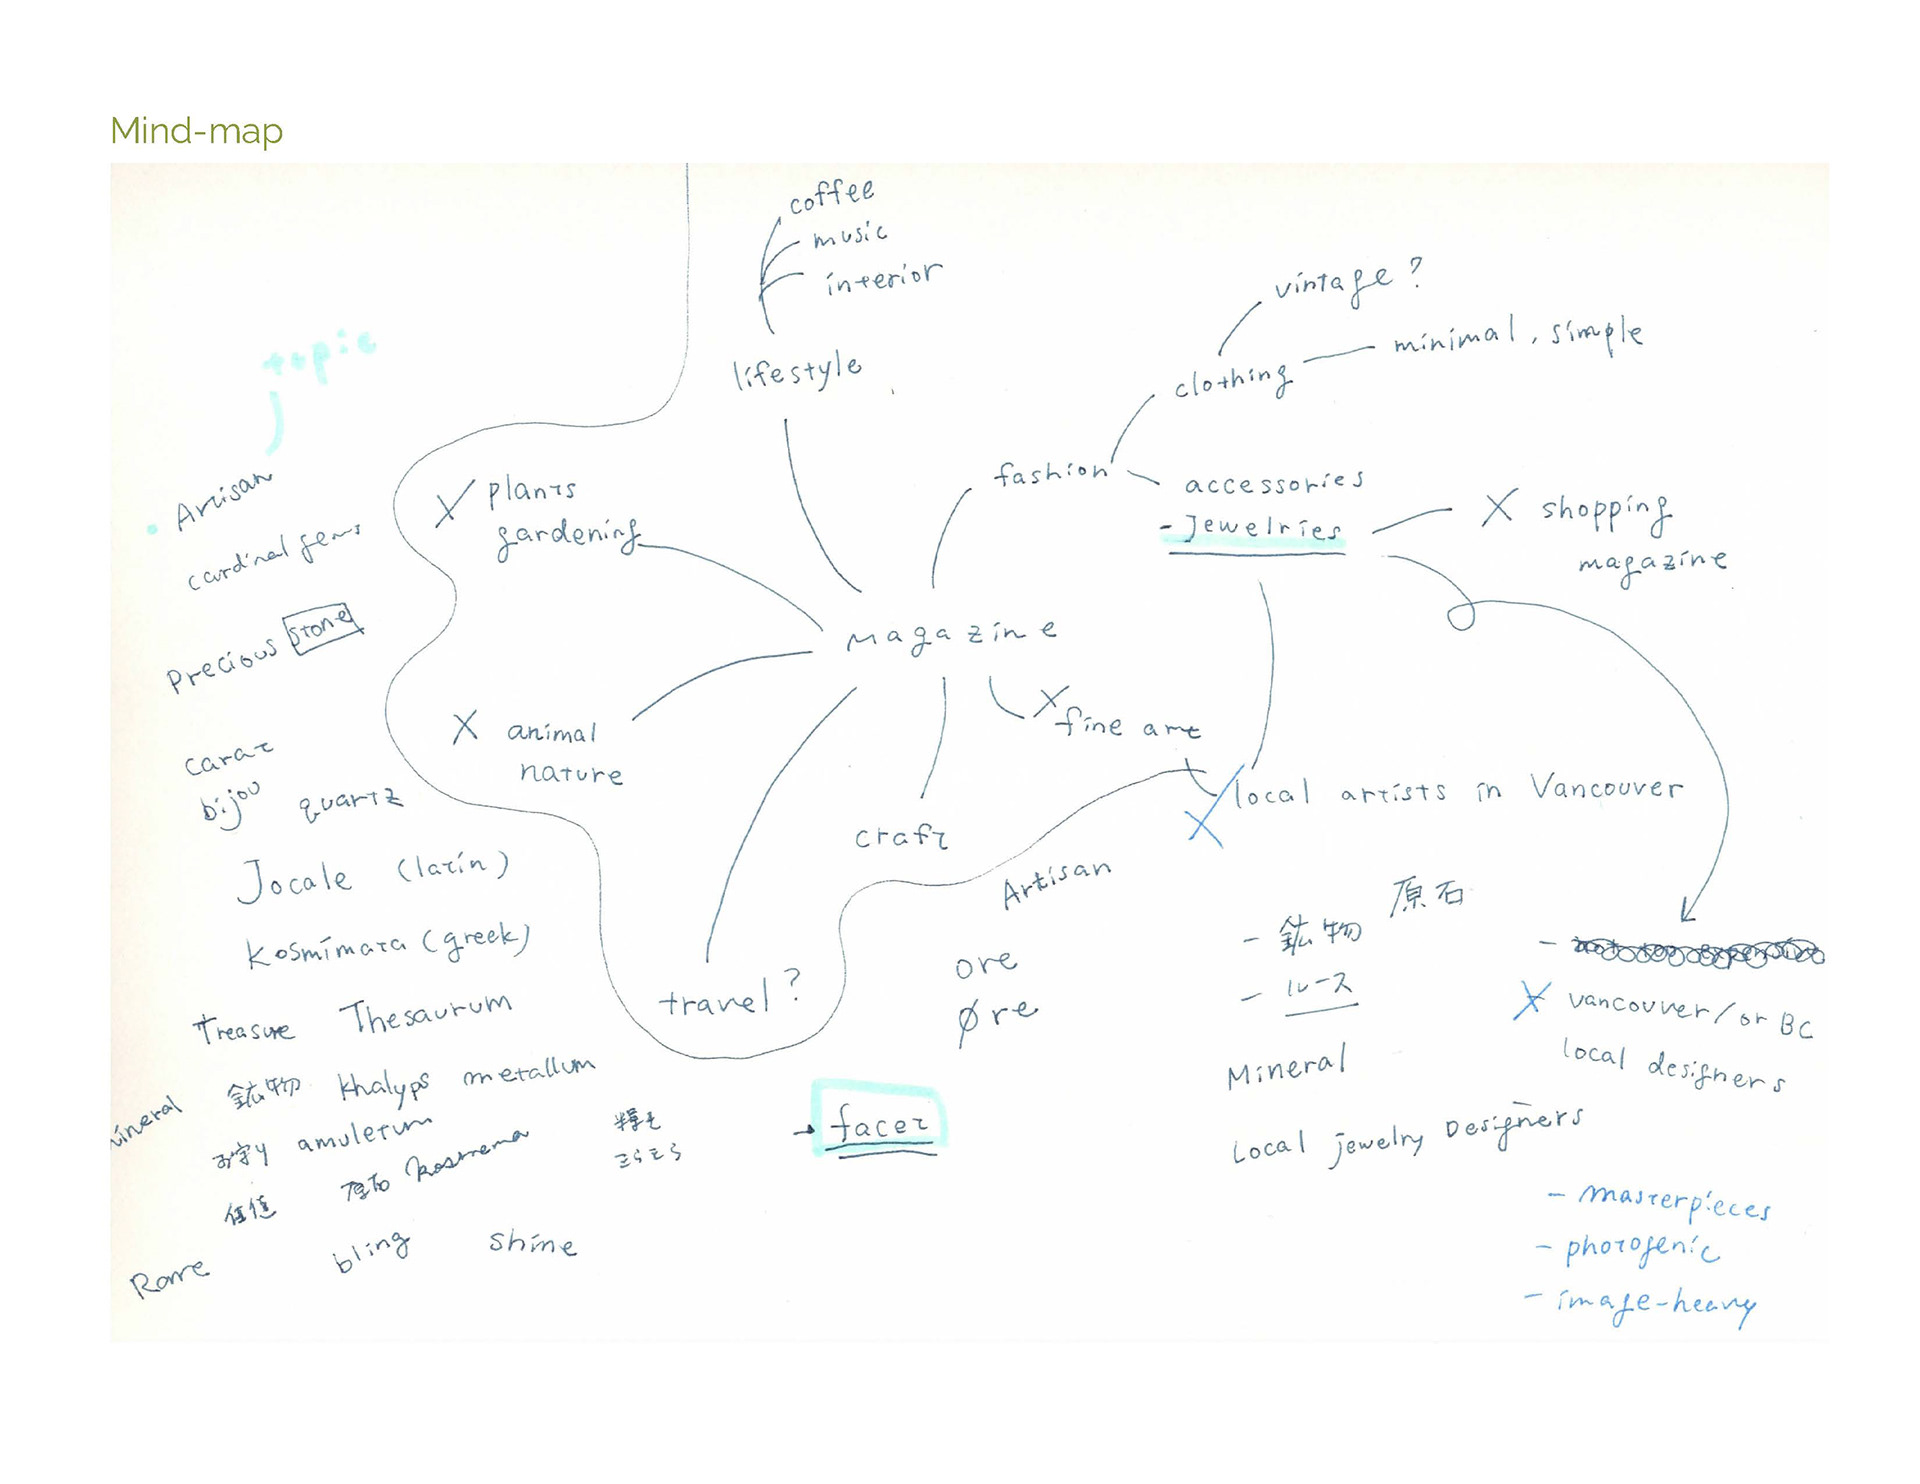 Mind-map
coffee
music
interior
lifestyle
topic
vintage ?
minimal, simple
clothing
fashion
accessories
- Jewelries
X shopping
magazine
X plants
gardening
magazine
X animal
nature
X
fine art
craft
travel ?
X
local artists in Vancouver
Artisan
cardinal gems
Precious stone
carat
bijou
quartz
Jocale (latin)
Kosmimata (greek)
Treasure
Thesaurum
mineral
鉱物
khalyps
metallum
お守り
amuletum
Rare
bling
shine
Artisan
ore
øre
→ facet
- 鉱物
原石
- ルース
Mineral
Local jewelry Designers
X vancouver/or BC
local designers
- masterpieces
- photogenic
- image-heavy